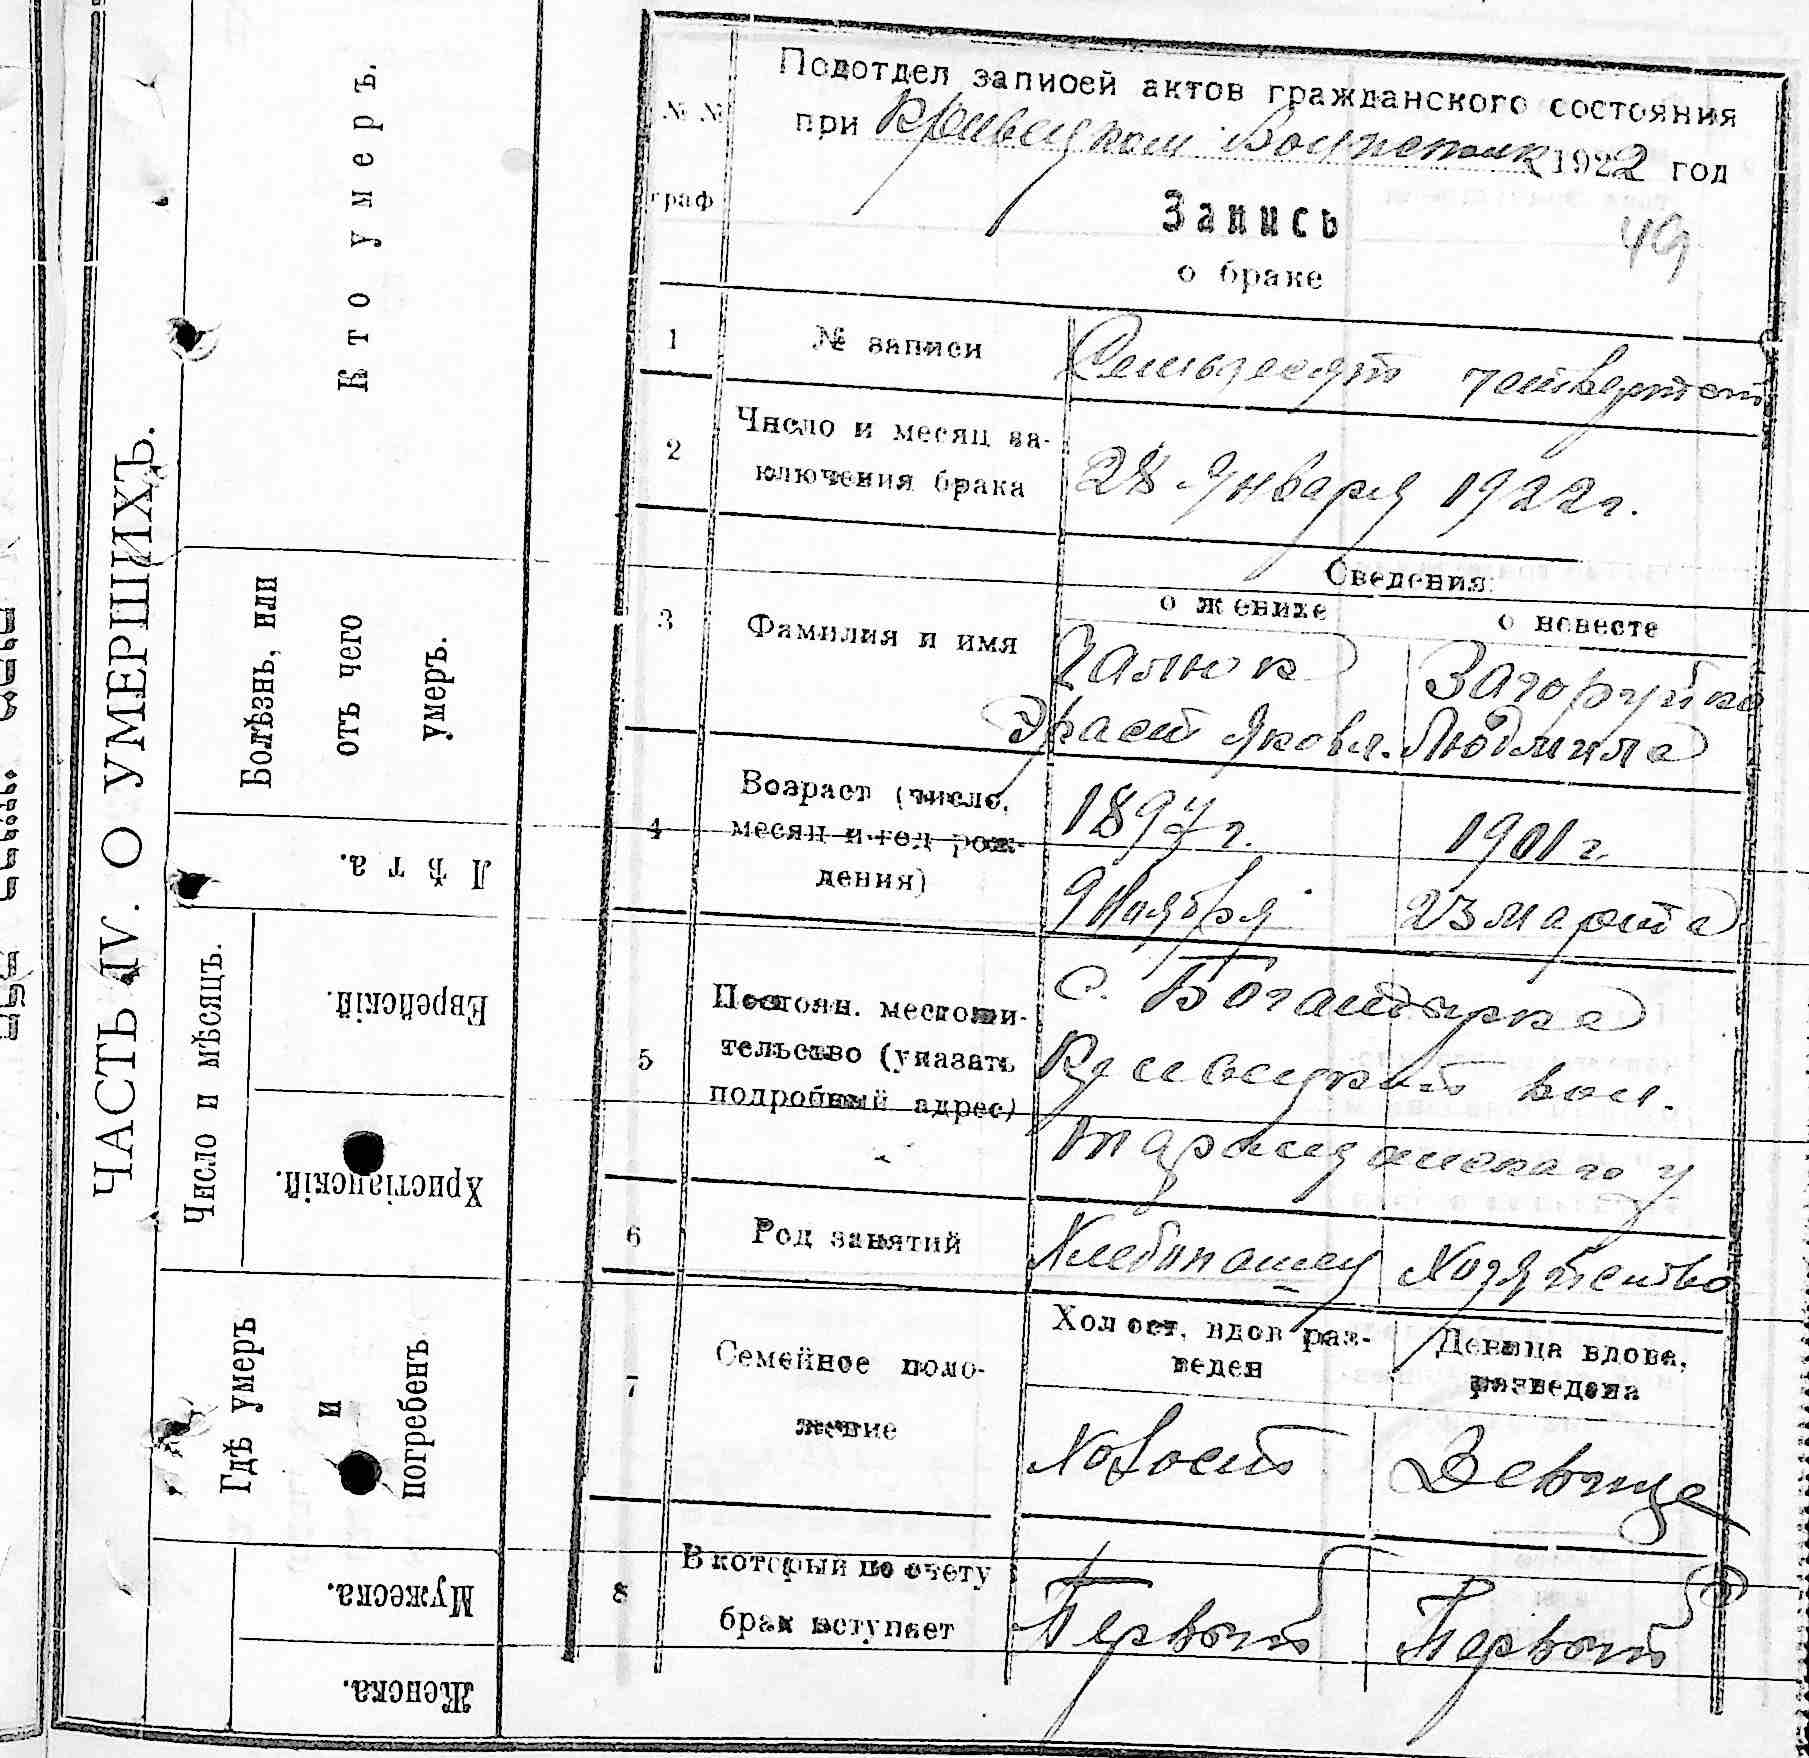 ЧАСТЬ IV. О УМЕРШИХЪ.
Кто умеръ.
Болѣзнь, или
отъ чего
умеръ.
Лѣта.
Число и мѣсяцъ.
Еврейскій.
Христіанскій.
Гдѣ умеръ
и
погребенъ
Мужеска.
Женска.
№ №
граф
Подотдел записей актов гражданского состояния
при 1922 год
Запись
49
о браке
1 № записи Семьдесят четвертый
2 Число и месяц за-
ключения брака 28 Января 1922 г.
Сведения:
о женихе о невесте
3 Фамилия и имя Галюк Загоруйко
Эраст Яковл. Людмила
4 Возраст (число, 1897 г. 1901 г.
месяц и год рож-
дения) 9 Ноября 23 марта
5 Постоян. местожи- с.
тельство (указать вол.
подробный адрес) Таращанскаго у
6 Род занятий Хлебопашец Хозяйство
7 Семейное поло-
жение
Холост, вдов раз-
веден
Девица вдова,
разведена
Холост Девица
8 В который по счету
брак вступает Первый Первый